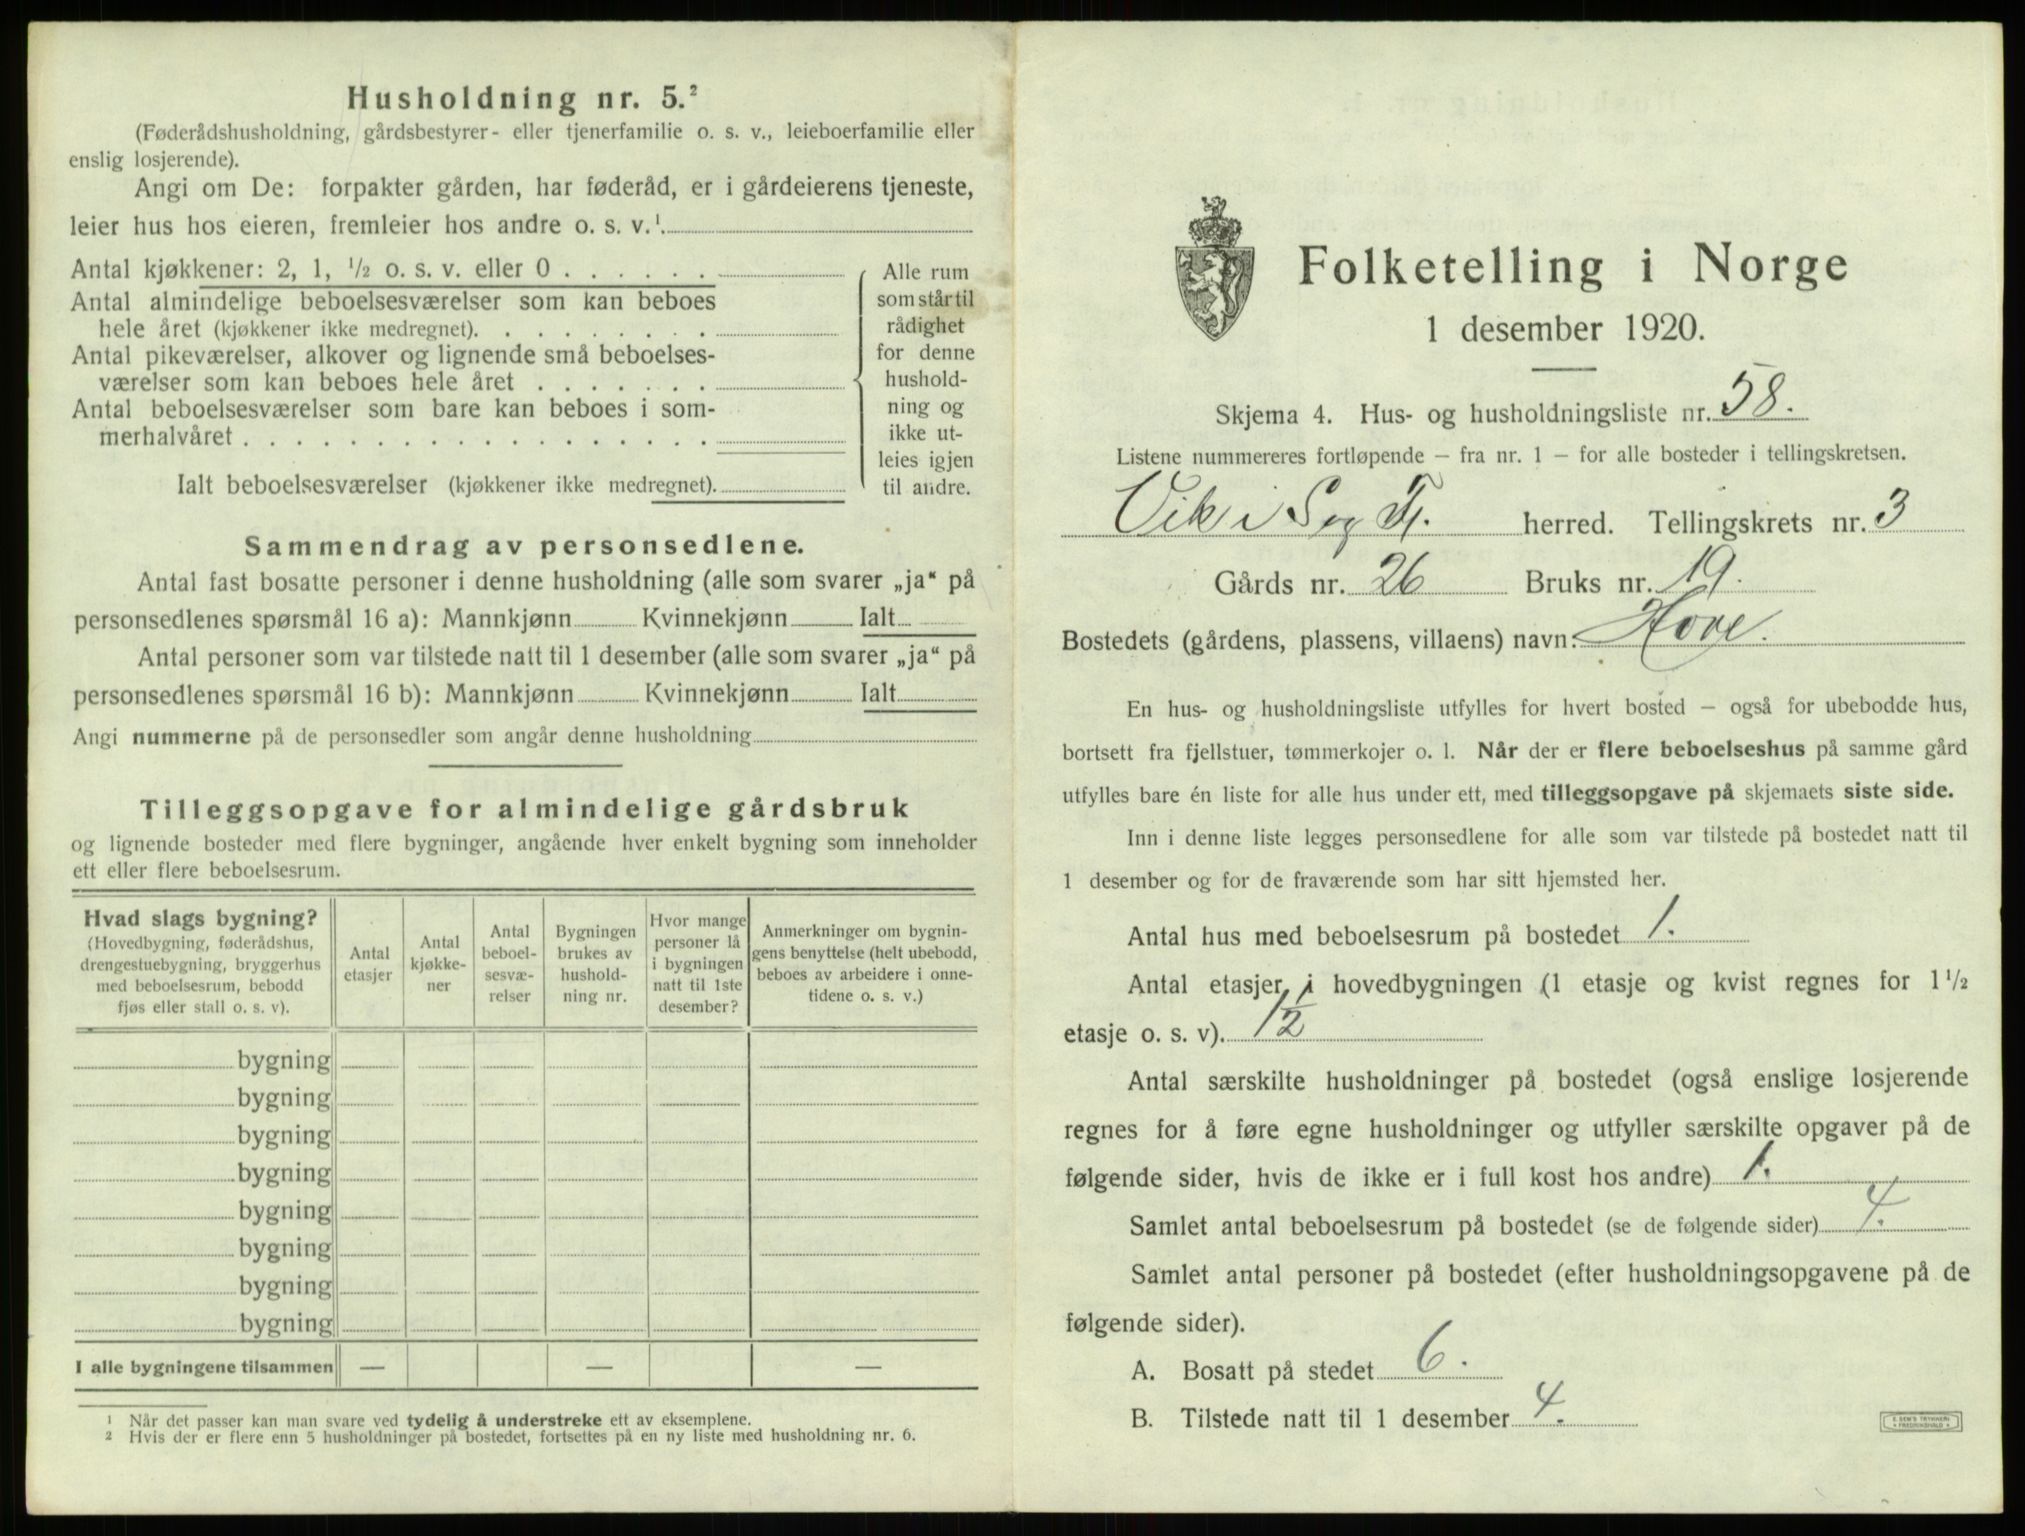 Husholdning nr. 5.²
(Føderådshusholdning, gårdsbestyrer- eller tjenerfamilie o. s. v., leieboerfamilie eller
enslig losjerende).
Angi om De: forpakter gården, har føderåd, er i gårdeierens tjeneste,
leier hus hos eieren, fremleier hos andre o. s. v.¹
Antal kjøkkener: 2, 1, ½ o. s. v. eller 0 . . . . . .
Antal almindelige beboelsesværelser som kan beboes
hele året (kjøkkener ikke medregnet). . . . . . . . .
Antal pikeværelser, alkover og lignende små beboelses-
værelser som kan beboes hele året . . . . . . .
Antal beboelsesværelser som bare kan beboes i som-
merhalvåret . . . . . . . . . . . . . . . . . .
Ialt beboelsesværelser (kjøkkener ikke medregnet).
Alle rum
som står til
rådighet
for denne
hushold-
ning og
ikke ut-
leies igjen
til andre.
Sammendrag av personsedlene.
Antal fast bosatte personer i denne husholdning (alle som svarer „ja“ på
personsedlenes spørsmål 16 a): Mannkjønn Kvinnekjønn Ialt
Antal personer som var tilstede natt til 1 desember (alle som svarer „ja“ på
personsedlenes spørsmål 16 b): Mannkjønn Kvinnekjønn Ialt
Angi nummerne på de personsedler som angår denne husholdning
Tilleggsopgave for almindelige gårdsbruk
og lignende bosteder med flere bygninger, angående hver enkelt bygning som inneholder
ett eller flere beboelsesrum.
Hvad slags bygning?
(Hovedbygning, føderådshus,
drengestuebygning, bryggerhus
med beboelsesrum, bebodd
fjøs eller stall o. s. v).
Antal
etasjer
Antal
kjøkke-
ner
Antal
beboel-
sesvæ-
relser
Bygningen
brukes av
hushold-
ning nr.
Hvor mange
personer lå
i bygningen
natt til 1ste
desember?
Anmerkninger om bygnin-
gens benyttelse (helt ubebodd,
beboes av arbeidere i onne-
tidene o. s. v.)
bygning
bygning
bygning
bygning
bygning
bygning
bygning
bygning
I alle bygningene tilsammen — — —
¹ Når det passer kan man svare ved tydelig å understreke ett av eksemplene.
² Hvis der er flere enn 5 husholdninger på bostedet, fortsettes på en ny liste med husholdning nr. 6.
Folketelling i Norge
1 desember 1920.
Skjema 4. Hus- og husholdningsliste nr. 58.
Listene nummereres fortløpende – fra nr. 1 – for alle bosteder i tellingskretsen.
Vik i Sogn Fj. herred. Tellingskrets nr. 3
Gårds nr. 26 Bruks nr. 19.
Bostedets (gårdens, plassens, villaens) navn: Hove.
En hus- og husholdningsliste utfylles for hvert bosted – også for ubebodde hus,
bortsett fra fjellstuer, tømmerkojer o. l. Når der er flere beboelseshus på samme gård
utfylles bare én liste for alle hus under ett, med tilleggsopgave på skjemaets siste side.
Inn i denne liste legges personsedlene for alle som var tilstede på bostedet natt til
1 desember og for de fraværende som har sitt hjemsted her.
Antal hus med beboelsesrum på bostedet 1.
Antal etasjer i hovedbygningen (1 etasje og kvist regnes for 1½
etasje o. s. v). 1½
Antal særskilte husholdninger på bostedet (også enslige losjerende
regnes for å føre egne husholdninger og utfyller særskilte opgaver på de
følgende sider, hvis de ikke er i full kost hos andre) 1.
Samlet antal beboelsesrum på bostedet (se de følgende sider) 4.
Samlet antal personer på bostedet (efter husholdningsopgavene på de
følgende sider).
A. Bosatt på stedet 6.
B. Tilstede natt til 1 desember 4.
E. SEM'S TRYKKERI
FREDRIKSHALD